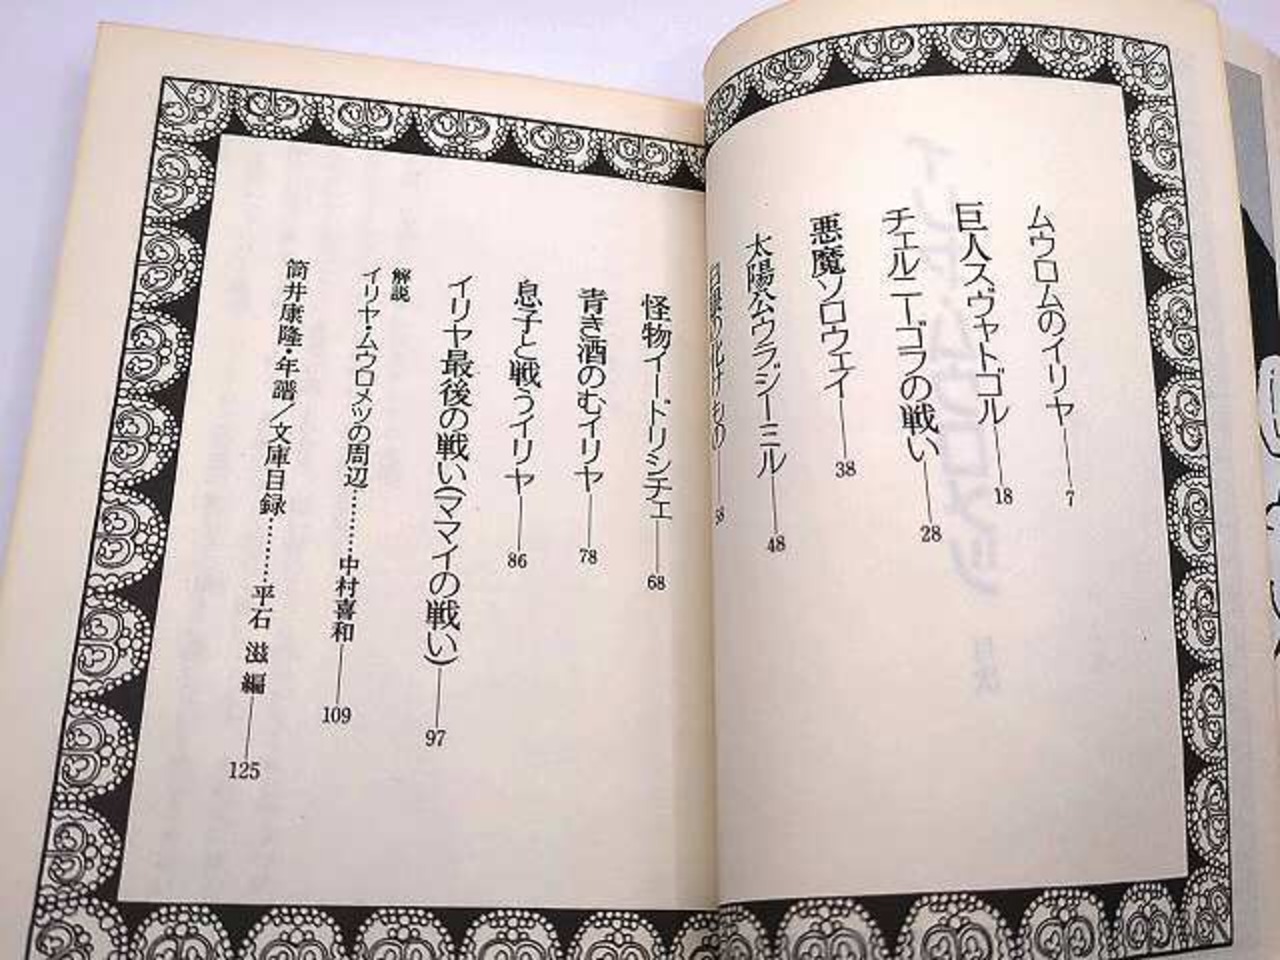 ムウロムのイリヤ 7
巨人スヴャトゴル 18
チェルニーゴフの戦い 28
悪魔ソロウェイ 38
太陽公ウラジーミル 48
の化けもの
怪物イードリシチェ 68
青き酒のむイリヤ 78
息子と戦うイリヤ 86
イリヤ最後の戦い(ママイの戦い) 97
解説
イリヤ・ムウロメツの周辺………中村喜和 109
筒井康隆・年譜/文庫目録………平石 滋 編 125